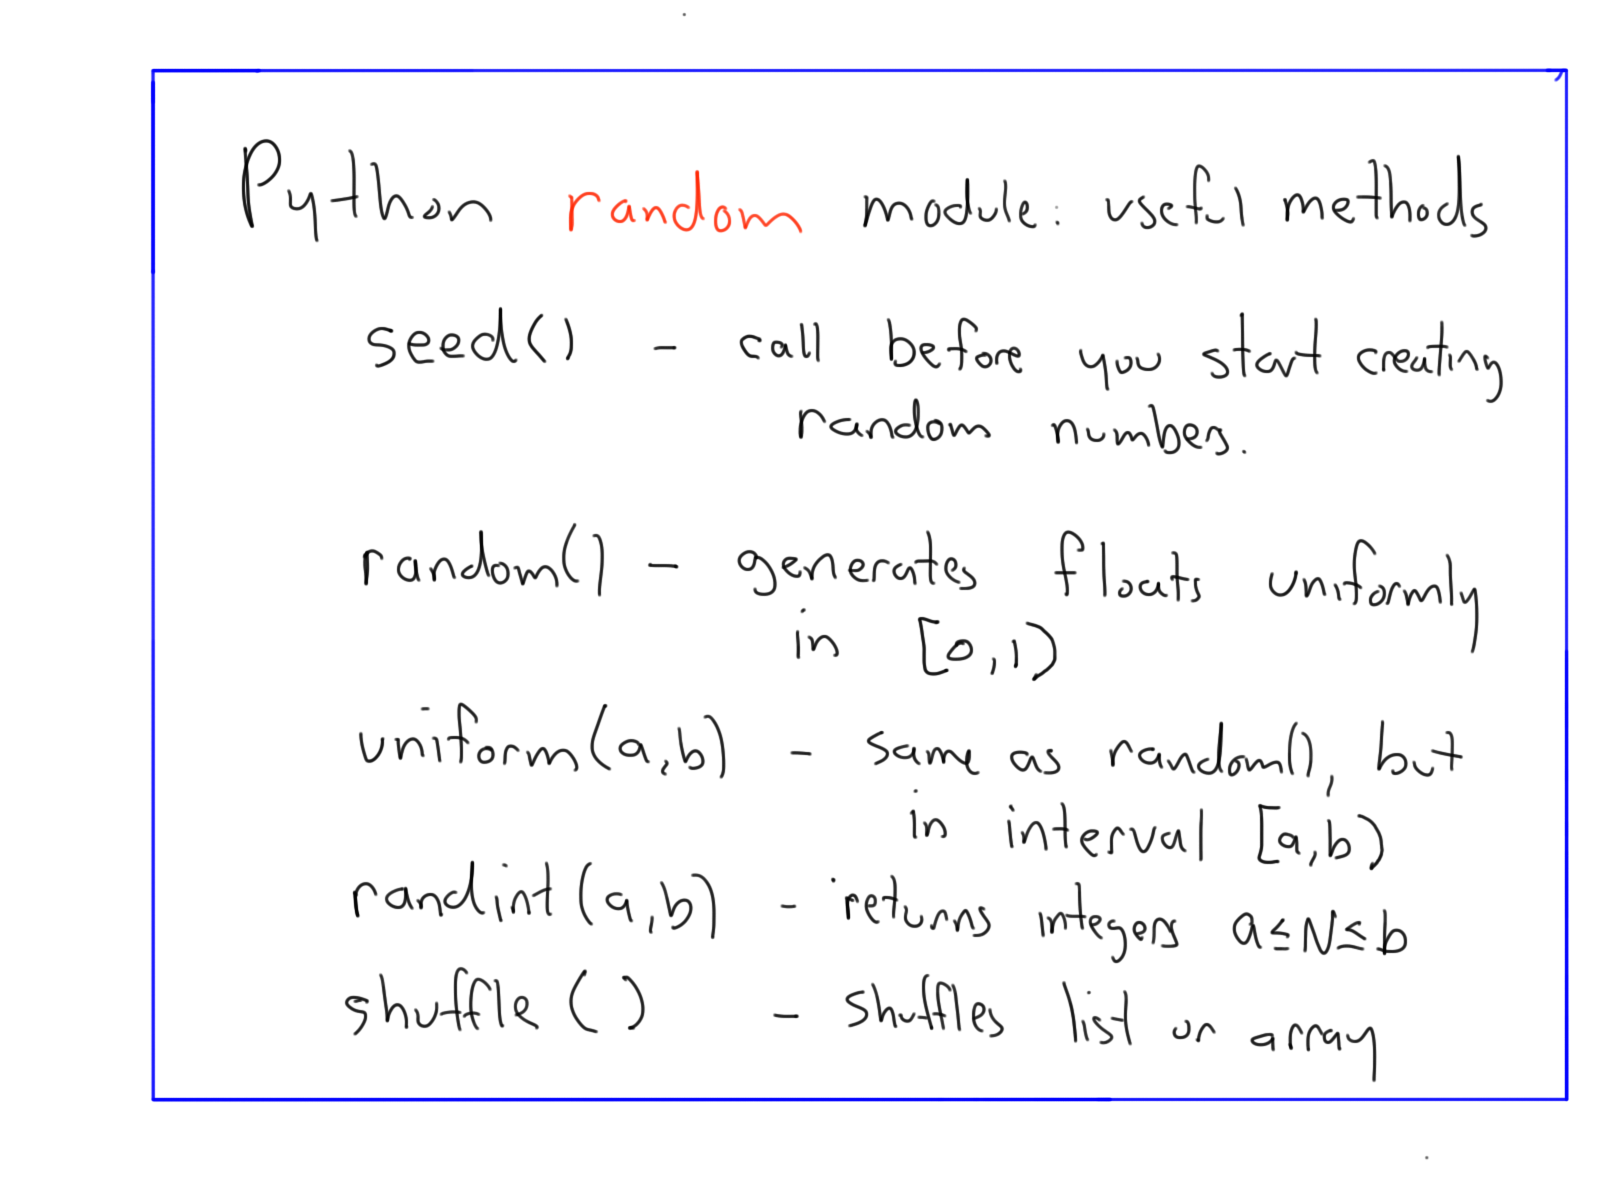 Python random module: useful methods
seed() - call before you start creating
random numbers.
random() - generates floats uniformly
in [0,1)
uniform(a,b) - same as random(), but
in interval [a,b)
randint(a,b) - returns integers a≤N≤b
shuffle() - shuffles list or array